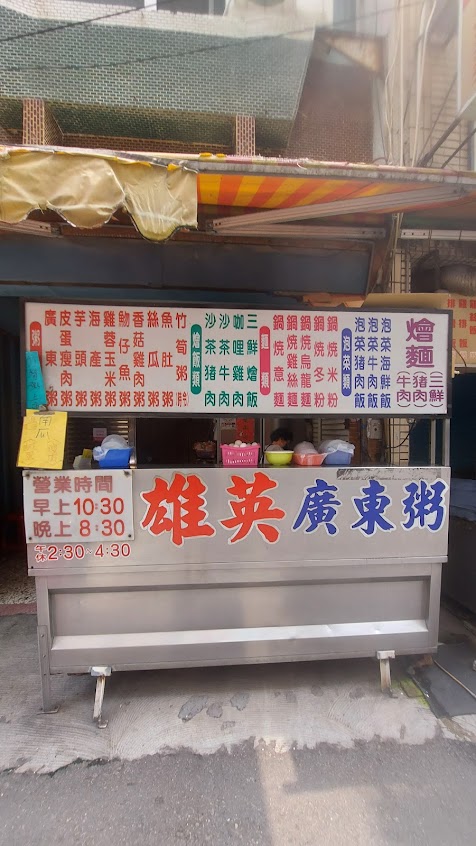 粥
廣東粥
皮蛋瘦肉粥
芋頭粥
海產粥
雞蓉玉米粥
魩仔魚粥
香菇雞肉粥
絲瓜粥
魚肚粥
竹筍粥
燴飯類
沙茶豬肉飯
沙茶牛肉飯
咖哩雞肉飯
三鮮燴飯
麵類
鍋燒意麵
鍋燒雞絲麵
鍋燒烏龍麵
鍋燒冬粉
鍋燒米粉
泡菜類
泡菜豬肉飯
泡菜牛肉飯
泡菜海鮮飯
燴麵
(牛肉 豬肉 三鮮)
營業時間
早上10:30
晚上8:30
午休2:30~4:30
雄英廣東粥